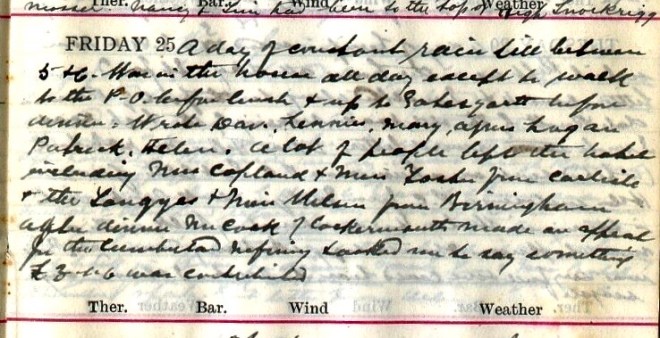 Ther. Bar. Wind Weather
mosser. Nancy & Tim had been to the top of High Snockrigg
FRIDAY 25 A day of constant rain till between
5 & 6. Was in the house all day except to walk
to the P.O. before lunch & up to Gatesgarth before
dinner. Wrote Dav, Mary,
Patrick, Helen. A lot of people left the hotel
including Miss Copland & Miss from Carlisle
& the & Miss from Birmingham
After dinner Mr Cook of Cockermouth made an appeal
for the Cumberland & asked me to say something
£3 was contributed
Ther. Bar. Wind Weather